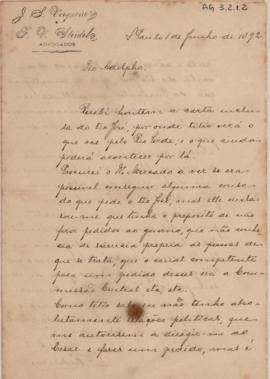 AG 3.2.1.2
J. S.
&
F. V.
ADVOGADOS
S. Paulo 1 de Junho de 1892
Tio Adolpho.
Recebi hontem a carta inclu-
sa do tio José, por onde titio verá o
que vae pelo Rio Verde, e o que ainda
poderá acontecer por lá.
Procurei o Dr. Mercado a ver se era
possivel conseguir alguma cousa
do que pede o tio José, mas elle decla-
rou-me que tinha o proposito de não
fazer pedidos ao governo, que não conhe-
cia de sciencia propria as pessoas de
que se trata, que o canal competente
para um pedido desses era a Com-
missão Central etc, etc.
Como titio sabe eu não tenho abso-
lutamente relações politicas, que
me autorisem a dirigir-me ao
e fazer um pedido, mas é